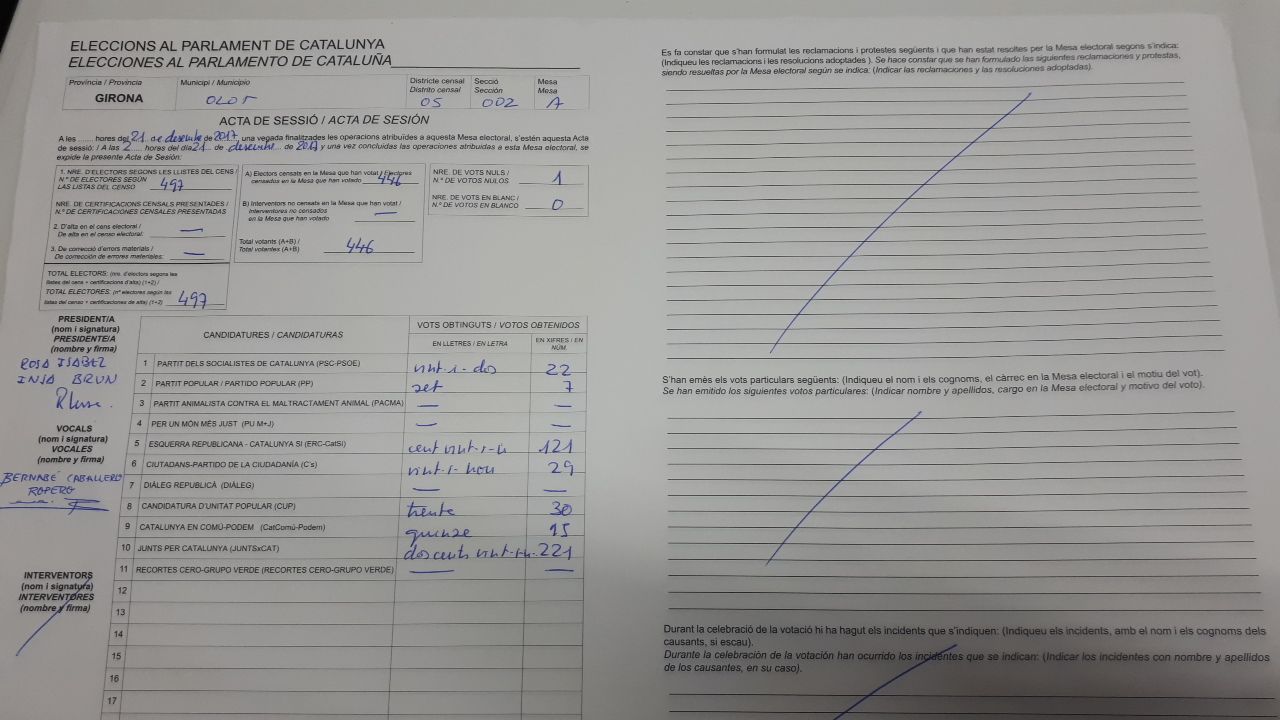 ELECCIONS AL PARLAMENT DE CATALUNYA
ELECCIONES AL PARLAMENTO DE CATALUÑA
Província / Provincia
GIRONA
Municipi / Municipio
OLOT
Districte censal
Distrito censal
05
Secció
Sección
002
Mesa
Mesa
A
ACTA DE SESSIÓ / ACTA DE SESIÓN
A les ...... hores del 21 de desembre de 2017, una vegada finalitzades les operacions atribuïdes a aquesta Mesa electoral, s'estén aquesta Acta
de sessió: / A las 2 hores del día 21 de desembre de 2017 y una vez concluidas las operaciones atribuidas a esta Mesa electoral, se
expide la presente Acta de Sesión:
1. NRE. D'ELECTORS SEGONS LES LLISTES DEL CENS /
N.º DE ELECTORES SEGÚN
LAS LISTAS DEL CENSO 497
NRE. DE CERTIFICACIONS CENSALS PRESENTADES /
N.º DE CERTIFICACIONES CENSALES PRESENTADAS
2. D'alta en el cens electoral /
De alta en el censo electoral: —
3. De correcció d'errors materials /
De corrección de errores materiales: —
TOTAL ELECTORS: (nre. d'electors segons les
llistes del cens + certificacions d'alta) (1+2) /
TOTAL ELECTORES: (nº electores según las
listas del censo + certificaciones de alta) (1+2) 497
A) Electors censats en la Mesa que han votat / Electores
censados en la Mesa que han votado 446
B) Interventors no censats en la Mesa que han votat /
Interventores no censados
en la Mesa que han votado —
Total votants (A+B) /
Total votantes (A+B) 446
NRE. DE VOTS NULS /
N.º DE VOTOS NULOS 1
NRE. DE VOTS EN BLANC /
N.º DE VOTOS EN BLANCO 0
PRESIDENT/A
(nom i signatura)
PRESIDENTE/A
(nombre y firma)
ROSA ISABEL
INSA BRUN
VOCALS
(nom i signatura)
VOCALES
(nombre y firma)
BERNABÉ CABALLERO
ROPERO
INTERVENTORS
(nom i signatura)
INTERVENTORES
(nombre y firma)
CANDIDATURES / CANDIDATURAS
VOTS OBTINGUTS / VOTOS OBTENIDOS
EN LLETRES / EN LETRA
EN XIFRES / EN NÚM.
1 PARTIT DELS SOCIALISTES DE CATALUNYA (PSC-PSOE) vint-i-dos 22
2 PARTIT POPULAR / PARTIDO POPULAR (PP) set 7
3 PARTIT ANIMALISTA CONTRA EL MALTRACTAMENT ANIMAL (PACMA) — —
4 PER UN MÓN MÉS JUST (PU M+J) — —
5 ESQUERRA REPUBLICANA - CATALUNYA SI (ERC-CatSi) cent vint-i-u 121
6 CIUTADANS-PARTIDO DE LA CIUDADANÍA (C's) vint-i-nou 29
7 DIÀLEG REPUBLICÀ (DIÀLEG) — —
8 CANDIDATURA D'UNITAT POPULAR (CUP) trenta 30
9 CATALUNYA EN COMÚ-PODEM (CatComú-Podem) quinze 15
10 JUNTS PER CATALUNYA (JUNTSxCAT) dos cents vint-i-u 221
11 RECORTES CERO-GRUPO VERDE (RECORTES CERO-GRUPO VERDE) — —
12
13
14
15
16
17
Es fa constar que s'han formulat les reclamacions i protestes següents i que han estat resoltes per la Mesa electoral segons s'indica:
(Indiqueu les reclamacions i les resolucions adoptades ). Se hace constar que se han formulado las siguientes reclamaciones y protestas,
siendo resueltas por la Mesa electoral según se indica: (Indicar las reclamaciones y las resoluciones adoptadas).
S'han emès els vots particulars següents: (Indiqueu el nom i els cognoms, el càrrec en la Mesa electoral i el motiu del vot).
Se han emitido los siguientes votos particulares: (Indicar nombre y apellidos, cargo en la Mesa electoral y motivo del voto).
Durant la celebració de la votació hi ha hagut els incidents que s'indiquen: (Indiqueu els incidents, amb el nom i els cognoms dels
causants, si escau).
Durante la celebración de la votación han ocurrido los incidentes que se indican: (Indicar los incidentes con nombre y apellidos
de los causantes, en su caso).